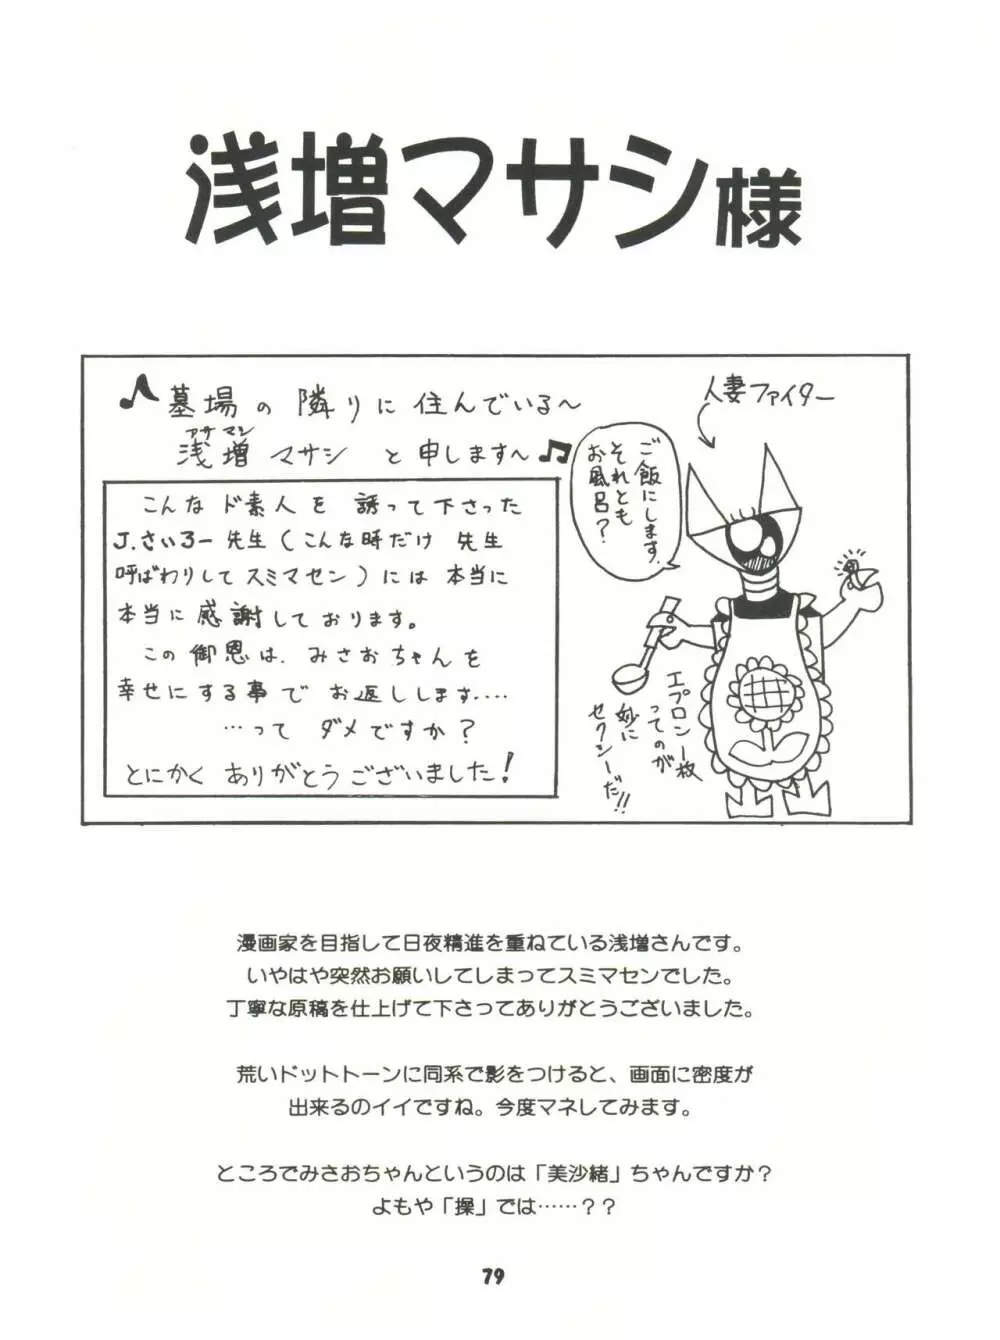 浅増マサシ様
♪墓場の隣りに住んでいる〜
アサマシ
浅増マサシと申します〜♫
こんなド素人を誘って下さった
J.さいろー先生(こんな時だけ先生
呼ばわりしてスミマセン)には本当に
本当に感謝しております。
この御恩は、みさおちゃんを
幸せにする事でお返しします….…
…ってダメですか?
とにかくありがとうございました!
人妻ファイター
ご飯にします、
それとも
お風呂?
エプロン一枚
ってのが
妙に
セクシーだ!!
漫画家を目指して日夜精進を重ねている浅増さんです。
いやはや突然お願いしてしまってスミマセンでした。
丁寧な原稿を仕上げて下さってありがとうございました。
荒いドットトーンに同系で影をつけると、画面に密度が
出来るのイイですね。今度マネしてみます。
ところでみさおちゃんというのは「美沙緒」ちゃんですか?
よもや「操」では……??
79